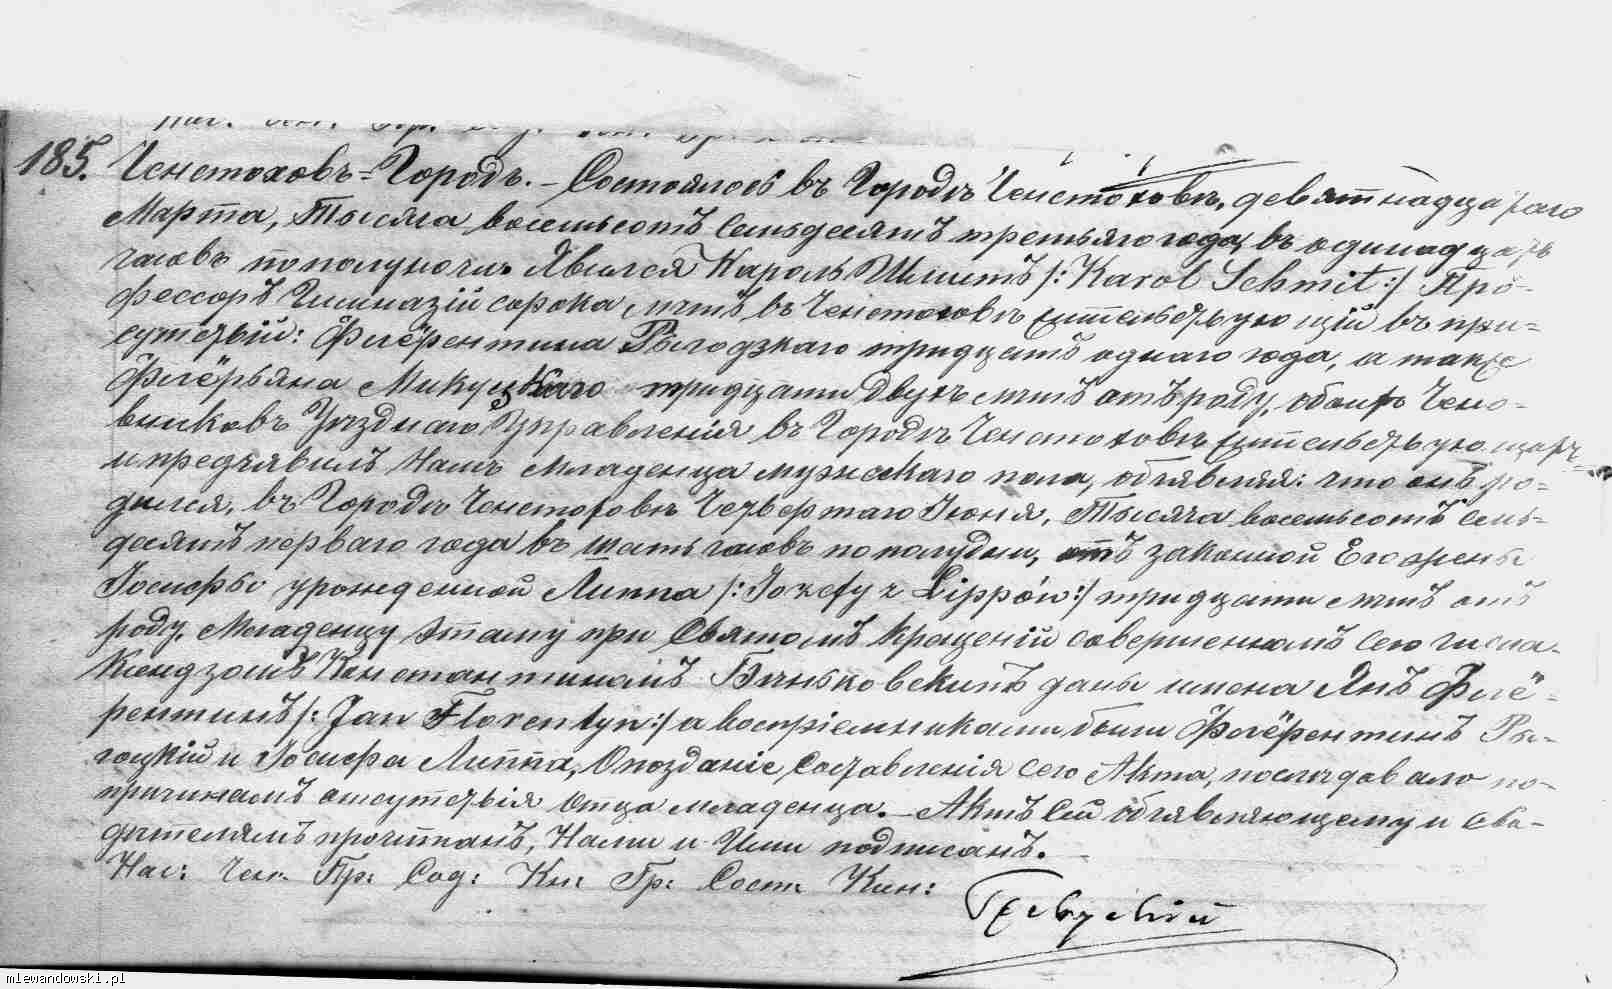 185. Ченстоховъ-Городъ. – Состоялось въ Городѣ Ченстоховѣ, девятнадцатаго
Марта, Тысяча восемьсотъ семьдесятъ третьяго года, въ одинадцать
часовъ по полуночи. Явился Кароль Шмитъ /: Karol Schmit :/ Про-
фессоръ Гимназіи сорока лѣтъ, въ Ченстоховѣ жительствующій въ при-
сутствіи: Флёрентина Рыгоцкаго тридцать однаго года, а также
Флёрьяна Микуцкаго тридцати двухъ лѣтъ отъ роду, обоихъ Чено-
вниковъ Уѣзднаго Управленія въ Городѣ Ченстоховѣ жительствующихъ
и предъявилъ Намъ Младенца мужскаго пола, объявляя: что онъ ро-
дился, въ Городѣ Ченстоховѣ Четвертаго Іюня, Тысяча восемьсотъ семь-
десятъ перваго года въ шесть часовъ по полудни, отъ законной Его жены
Іосифы урожденной Липпа /: Jozefy z Lippów :/ тридцати лѣтъ отъ
роду. Младенцу этому при Святомъ Крещеніи совершенномъ сего числа
Ксендзомъ Константиномъ Бѣньковскимъ даны имена Янъ Флё-
рентинъ /: Jan Florentyn :/ а воспріемниками были Флёрентинъ Ры-
гоцкій и Іосифа Липпа, Опозданіе Составленія сего Акта, послѣдовало по-
причинамъ отсутствія Отца младенца. – Актъ Сей объявляющему и сви-
дѣтелямъ прочитанъ, Нами и Ими подписанъ.
Нас: Чен: Пр: Сод: Кн: Гр: Сост: Ксн:
mlewandowski.pl